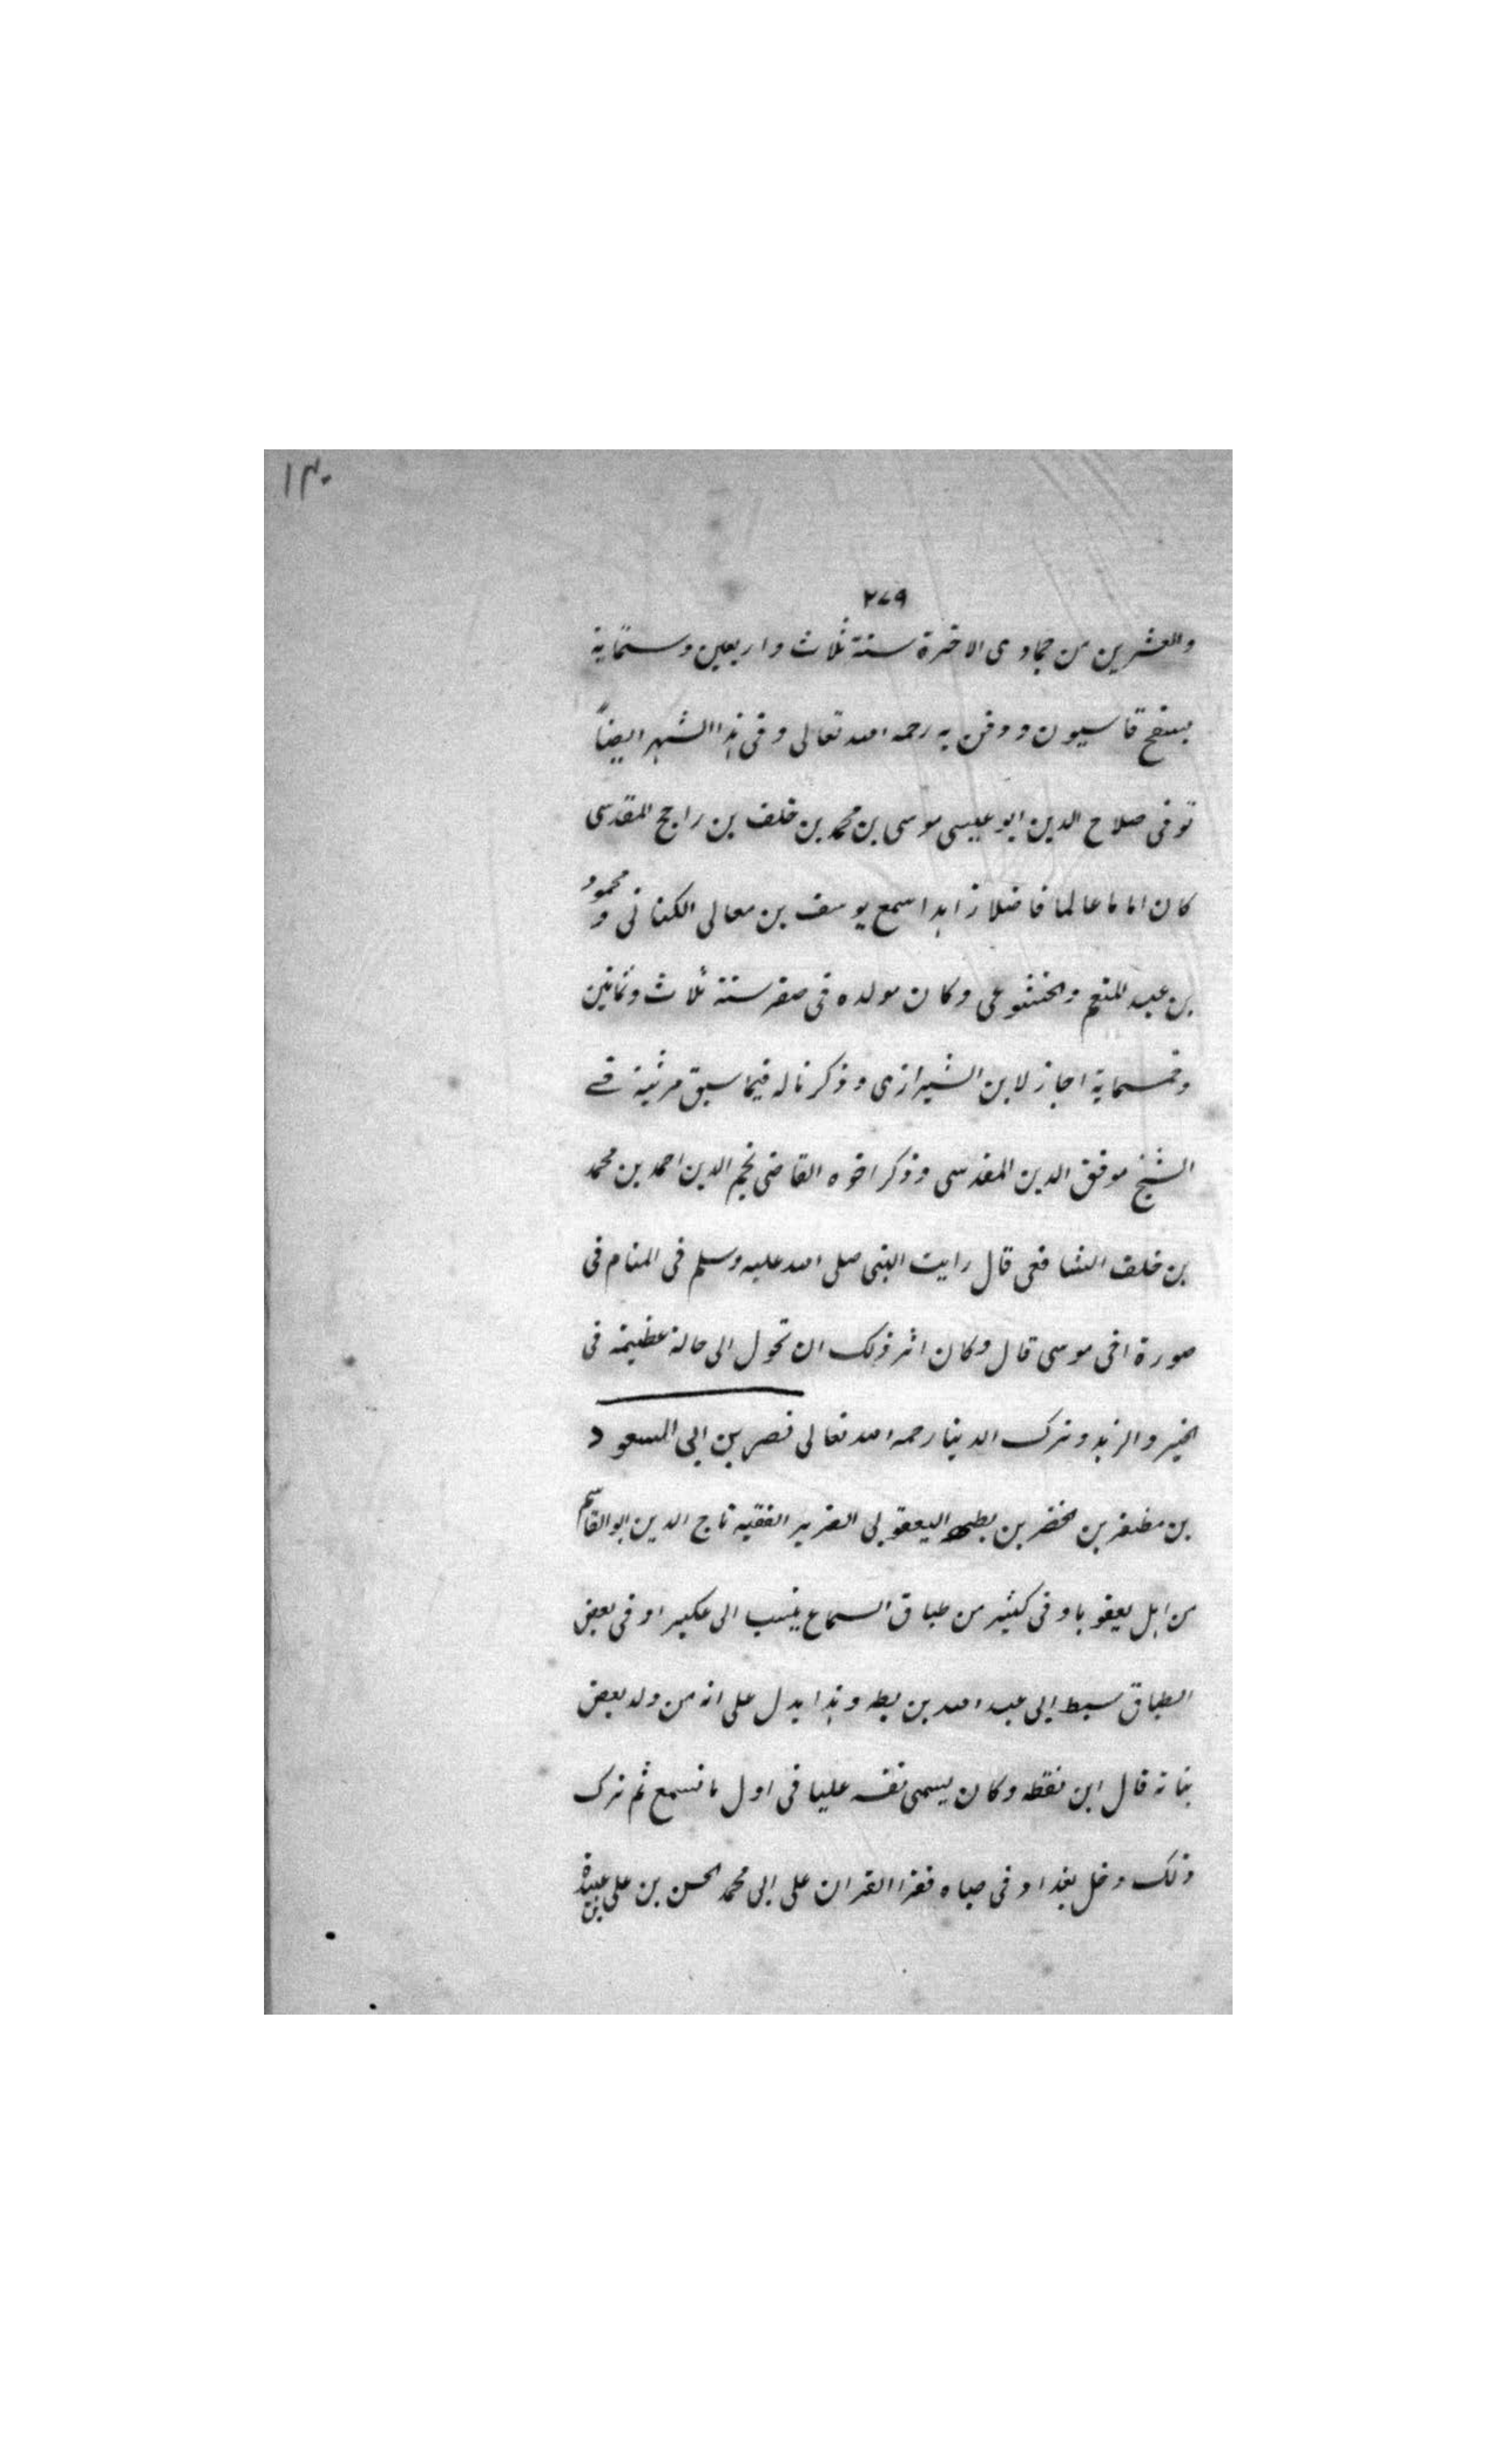 ١٣٠
٢٧٩
والعشرين من جمادى الاخرة سنة ثلاث واربعين وستماية
بسفح قاسيون ودفن به رحمه الله تعالى وفى هذا الشهر ايضاً
توفى صلاح الدين ابو عيسى موسى بن محمد بن خلف بن راجح المقدسى
كان اماما عالما فاضلا زاهدا سمع يوسف بن معالى الكنانى ومحمود
بن عبد المنعم والخشوعى وكان مولده فى صفر سنة ثلاث وثمانين
وخمسماية اجاز لابن الشيرازى وذكرنا له فيما سبق مرثية فے
الشيخ موفق الدين المقدسى وذكر اخوه القاضى نجم الدين احمد بن محمد
بن خلف الشافعى قال رايت النبى صلى الله عليه وسلم فى المنام فى
صورة اخى موسى قال وكان اثر ذلك ان تحول الى حالة عظيمة فى
الخير والزهد وترك الدنيا رحمه الله تعالى نصر بن ابى السعود
بن مظفر بن الخضر بن بطه اليعقوبى الضرير الفقيه تاج الدين ابو القاسم
من اهل يعقوبا وفى كثير من طباق السماع ينسب الى عكبرا وفى بعض
الطباق سبط ابى عبد الله بن بطه وهذا يدل على انه من ولد بعض
بناته قال ابن نقطه وكان يسمى نفسه عليا فى اول ما نسمع ثم ترك
ذلك دخل بغداد فى صباه فقرا القران على ابى محمد الحسن بن على بن عبيدة